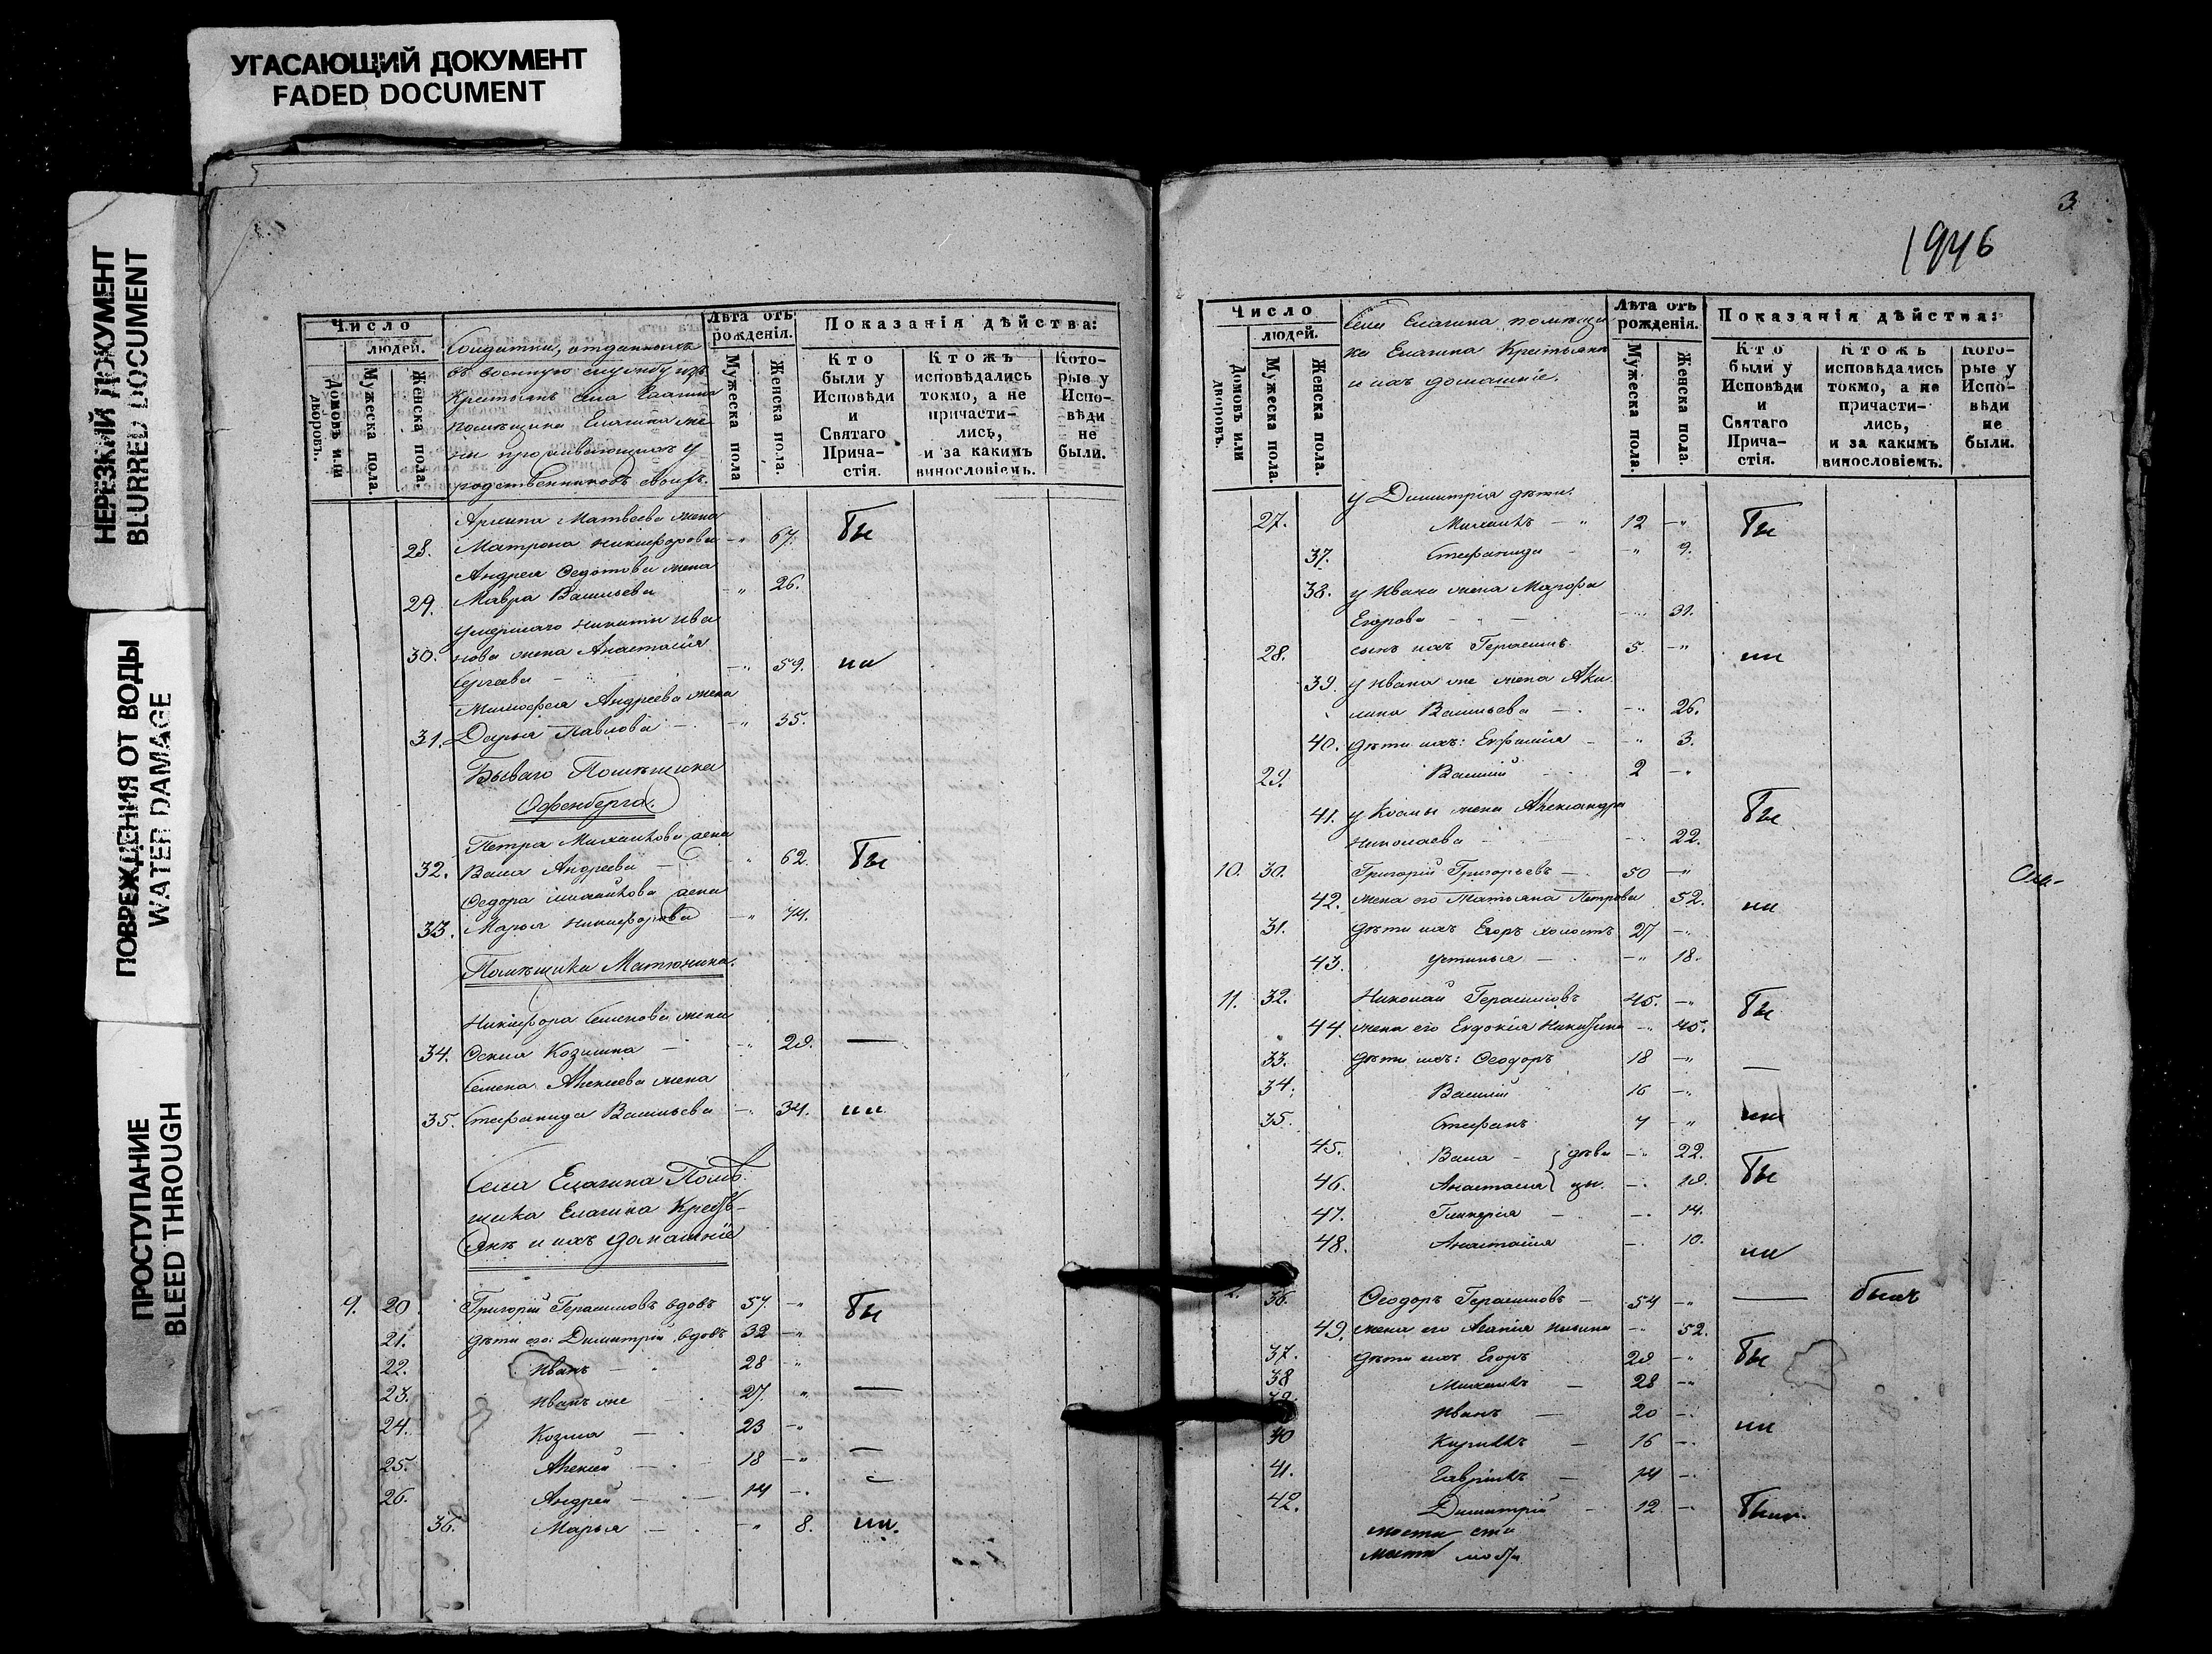 УГАСАЮЩИЙ ДОКУМЕНТ
FADED DOCUMENT
НЕРЕЗКИЙ ДОКУМЕНТ
BLURRED DOCUMENT
ПОВРЕЖДЕНИЯ ОТ ВОДЫ
WATER DAMAGE
ПРОСТУПАНИЕ
BLEED THROUGH
Число
людей.
Домовъ или дворовъ.
Мужеска пола.
Женска пола.
Солдатки, отданныхъ
въ военную службу изъ
крестьянъ села
помѣщика Елагина
проживающихъ у
родственниковъ своихъ.
Лѣта отъ рожденія.
Мужеска пола
Женска пола.
Показанія дѣйства:
Кто были у Исповѣди и Святаго Прича- стія.
Ктожъ исповѣдались токмо, а не причасти- лись, и за какимъ винословіемъ.
Кото- рые у Испо- вѣди не были.
Архипа Матвеева жена
28. Матрона Никифорова -" 67. Бы
Андрея Федотова жена
29. Мавра Васильева -" 26.
умершаго Никиты Ива
30. нова жена Анастасія
Сергеева -" 59. ли
Андреева жена
31. Дарья Павлова -" 35.
Бывшаго Помѣщика
Офенберга.
Петра Михайлова жена
32. Васса Андреева -" 62. Бы
Федора Михайлова жена
33. Марья Никифорова -" 74.
Помѣщика Матюнина.
Никифора Семенова жена
34. Козмина -" 29. —
Семена Алексеева жена
35. Стефанида Васильева -" 34. ли.
Села Елагина Помѣ
щика Елагина Кресть-
яне и ихъ домашніе
9. 20 Григорій Герасимовъ вдовъ 57. -"
Бы
21. дѣти его: Димитрій вдовъ 32 -"
22. Иванъ 28 -"
23. Иванъ же 27. " —
24. Козма 23 -"
25. Алексей 18 -" —
26. Андрей 14 -.
36. Марья -" 8. ли.
3
1946
Число
людей.
Домовъ или дворовъ.
Мужеска пола.
Женска пола.
Села Елагина помѣщи
ка Елагина Крестьяне
и ихъ домашніе.
Лѣта отъ рожденія.
Мужеска пола.
Женска пола.
Показанія дѣйства:
Кто были у Исповѣди и Святаго Прича- стія.
Ктожъ исповѣдались токмо, а не причасти- лись, и за какимъ винословіемъ.
Кото- рые у Испо- вѣди не были.
у Димитрія дѣти:
27. Михаилъ 12 -" Бы
37. Стефанида -" 9.
38. у Ивана жена Марфа
Егорова -" 31.
28. сынъ ихъ Герасимъ 5. -" ли
39. у Ивана же жена Аки
лина Васильева -" 26.
40. дѣти ихъ: Евфимія -" 3.
29. Василій 2 -"
41. у Козмы жена Александра Бы
Николаева -" 22.
10. 30. Григорій Григорьевъ 50 -"
42. жена его Татьяна Петрова 52. ли
31. дѣти ихъ Егоръ холостъ 27 -.
43. Устинья -" 18.
11. 32. Николай Герасимовъ 45. -" Бы
44. жена его Евдокія Никитина -" 45.
33. дѣти ихъ: Ѳеодоръ 18 -" —
34. Василій 16 -"
35. Стефанъ 7 -" ли
45. Васса } дѣви -" 22.
46. Анастасія } цы. -. 19. Бы
47. Гликерія -. 14.
48. Анастасія -. 10. ли
36. Ѳеодоръ Герасимовъ 54 -" — былъ
49. жена его Агапія -" 52.
37. дѣти ихъ Егоръ 29 -" Бы
38 Михаилъ 28 -"
39. Иванъ 20 -. ли
40 Кирилъ 16 -.
41. Гаврілъ 14 -.
42. Димитрій 12 -. Были.